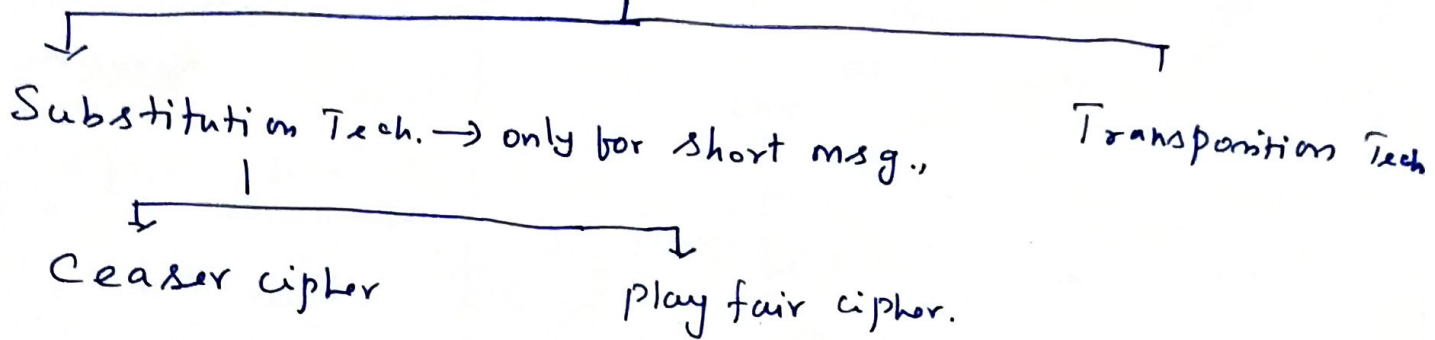 Substitution Tech. → only for short msg.,
Transposition Tech
Ceaser cipher
play fair cipher.